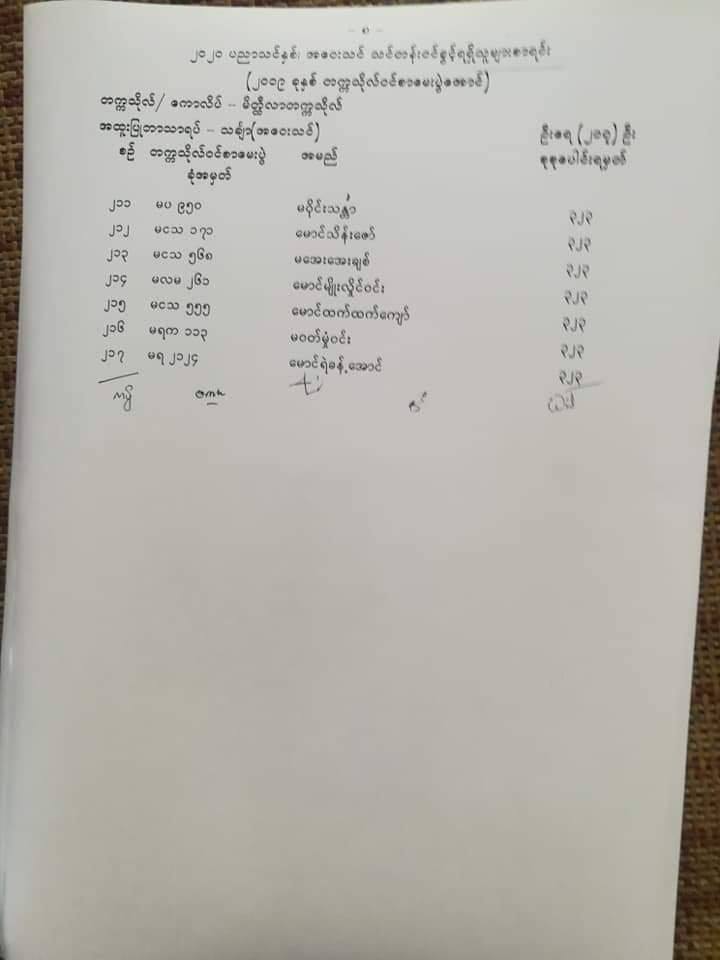 ၂၀၂၀ ပညာသင်နှစ်၊ အဝေးသင် သင်တန်းဝင်ခွင့်ရရှိသူများစာရင်း
(၂၀၁၉ ခုနှစ် တက္ကသိုလ်ဝင်စာမေးပွဲအောင်)
တက္ကသိုလ်/ ကောလိပ် - မိတ္ထီလာတက္ကသိုလ်
အထူးပြုဘာသာရပ် - သင်္ချာ(အဝေးသင်) ဦးရေ (၂၁၇) ဦး
စဉ် တက္ကသိုလ်ဝင်စာမေးပွဲ အမည် စုစုပေါင်းရမှတ်
ခုံအမှတ်
၂၁၁ မပ ၉၅၀ မဝိုင်းသန္တာ ၃၂၃
၂၁၂ မငသ ၁၇၁ မောင်သိန်းဇော် ၃၂၃
၂၁၃ မငသ ၅၆၈ မအေးအေးချစ် ၃၂၃
၂၁၄ မလမ ၂၆၁ မောင်မျိုးလှိုင်ဝင်း ၃၂၃
၂၁၅ မငသ ၅၅၅ မောင်ထက်ထက်ကျော် ၃၂၃
၂၁၆ မရက ၁၁၃ မဝတ်မှုံဝင်း ၃၂၃
၂၁၇ မရ ၂၁၂၄ မောင်ရဲခန့်အောင် ၃၂၃